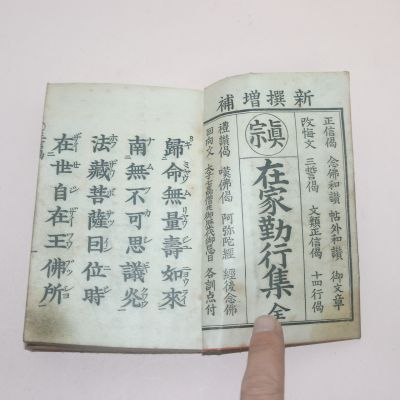 新撰增補
正信偈 念佛和讃 帖外和讃 御文章
改悔文 三誓偈 文類正信偈 十四行偈
眞宗
在家勤行集 全
禮讃偈 嘆佛偈 阿弥陀經 經後念佛
回向文 各訓点付
歸命無量壽如來
南無不可思議光
法藏菩薩因位時
在世自在王佛所